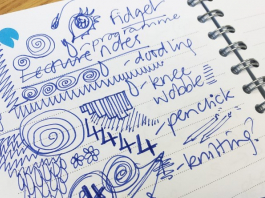 fidget
programme
Lecture notes
-doodling
-knee
wobble
-penclick
4444
-kniting?
4